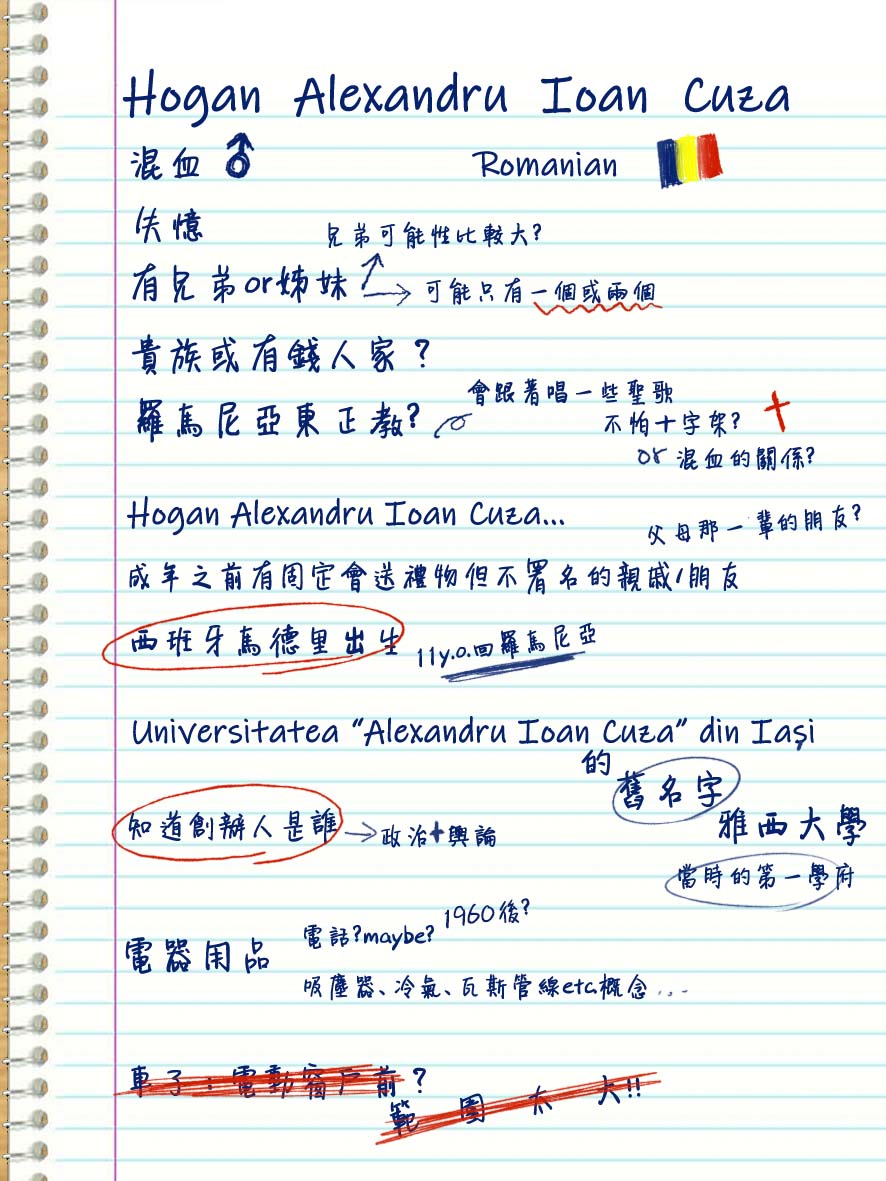 Hogan Alexandru Ioan Cuza
混血 ♂ Romanian
失憶
兄弟可能性比較大?
有兄弟or姊妹
可能只有一個或兩個
貴族或有錢人家?
會跟著唱一些聖歌
羅馬尼亞東正教?
不怕十字架?
or 混血的關係?
Hogan Alexandru Ioan Cuza...
父母那一輩的朋友?
成年之前有固定會送禮物但不署名的親戚/朋友
西班牙馬德里出生
11y.o.回羅馬尼亞
Universitatea “Alexandru Ioan Cuza” din Iași
的
舊名字
雅西大學
知道創辦人是誰
政治+輿論
當時的第一學府
1960後?
電話?maybe?
電器用品
吸塵器、冷氣、瓦斯管線etc.概念...
車子:電動窗戶前?
範圍太大!!